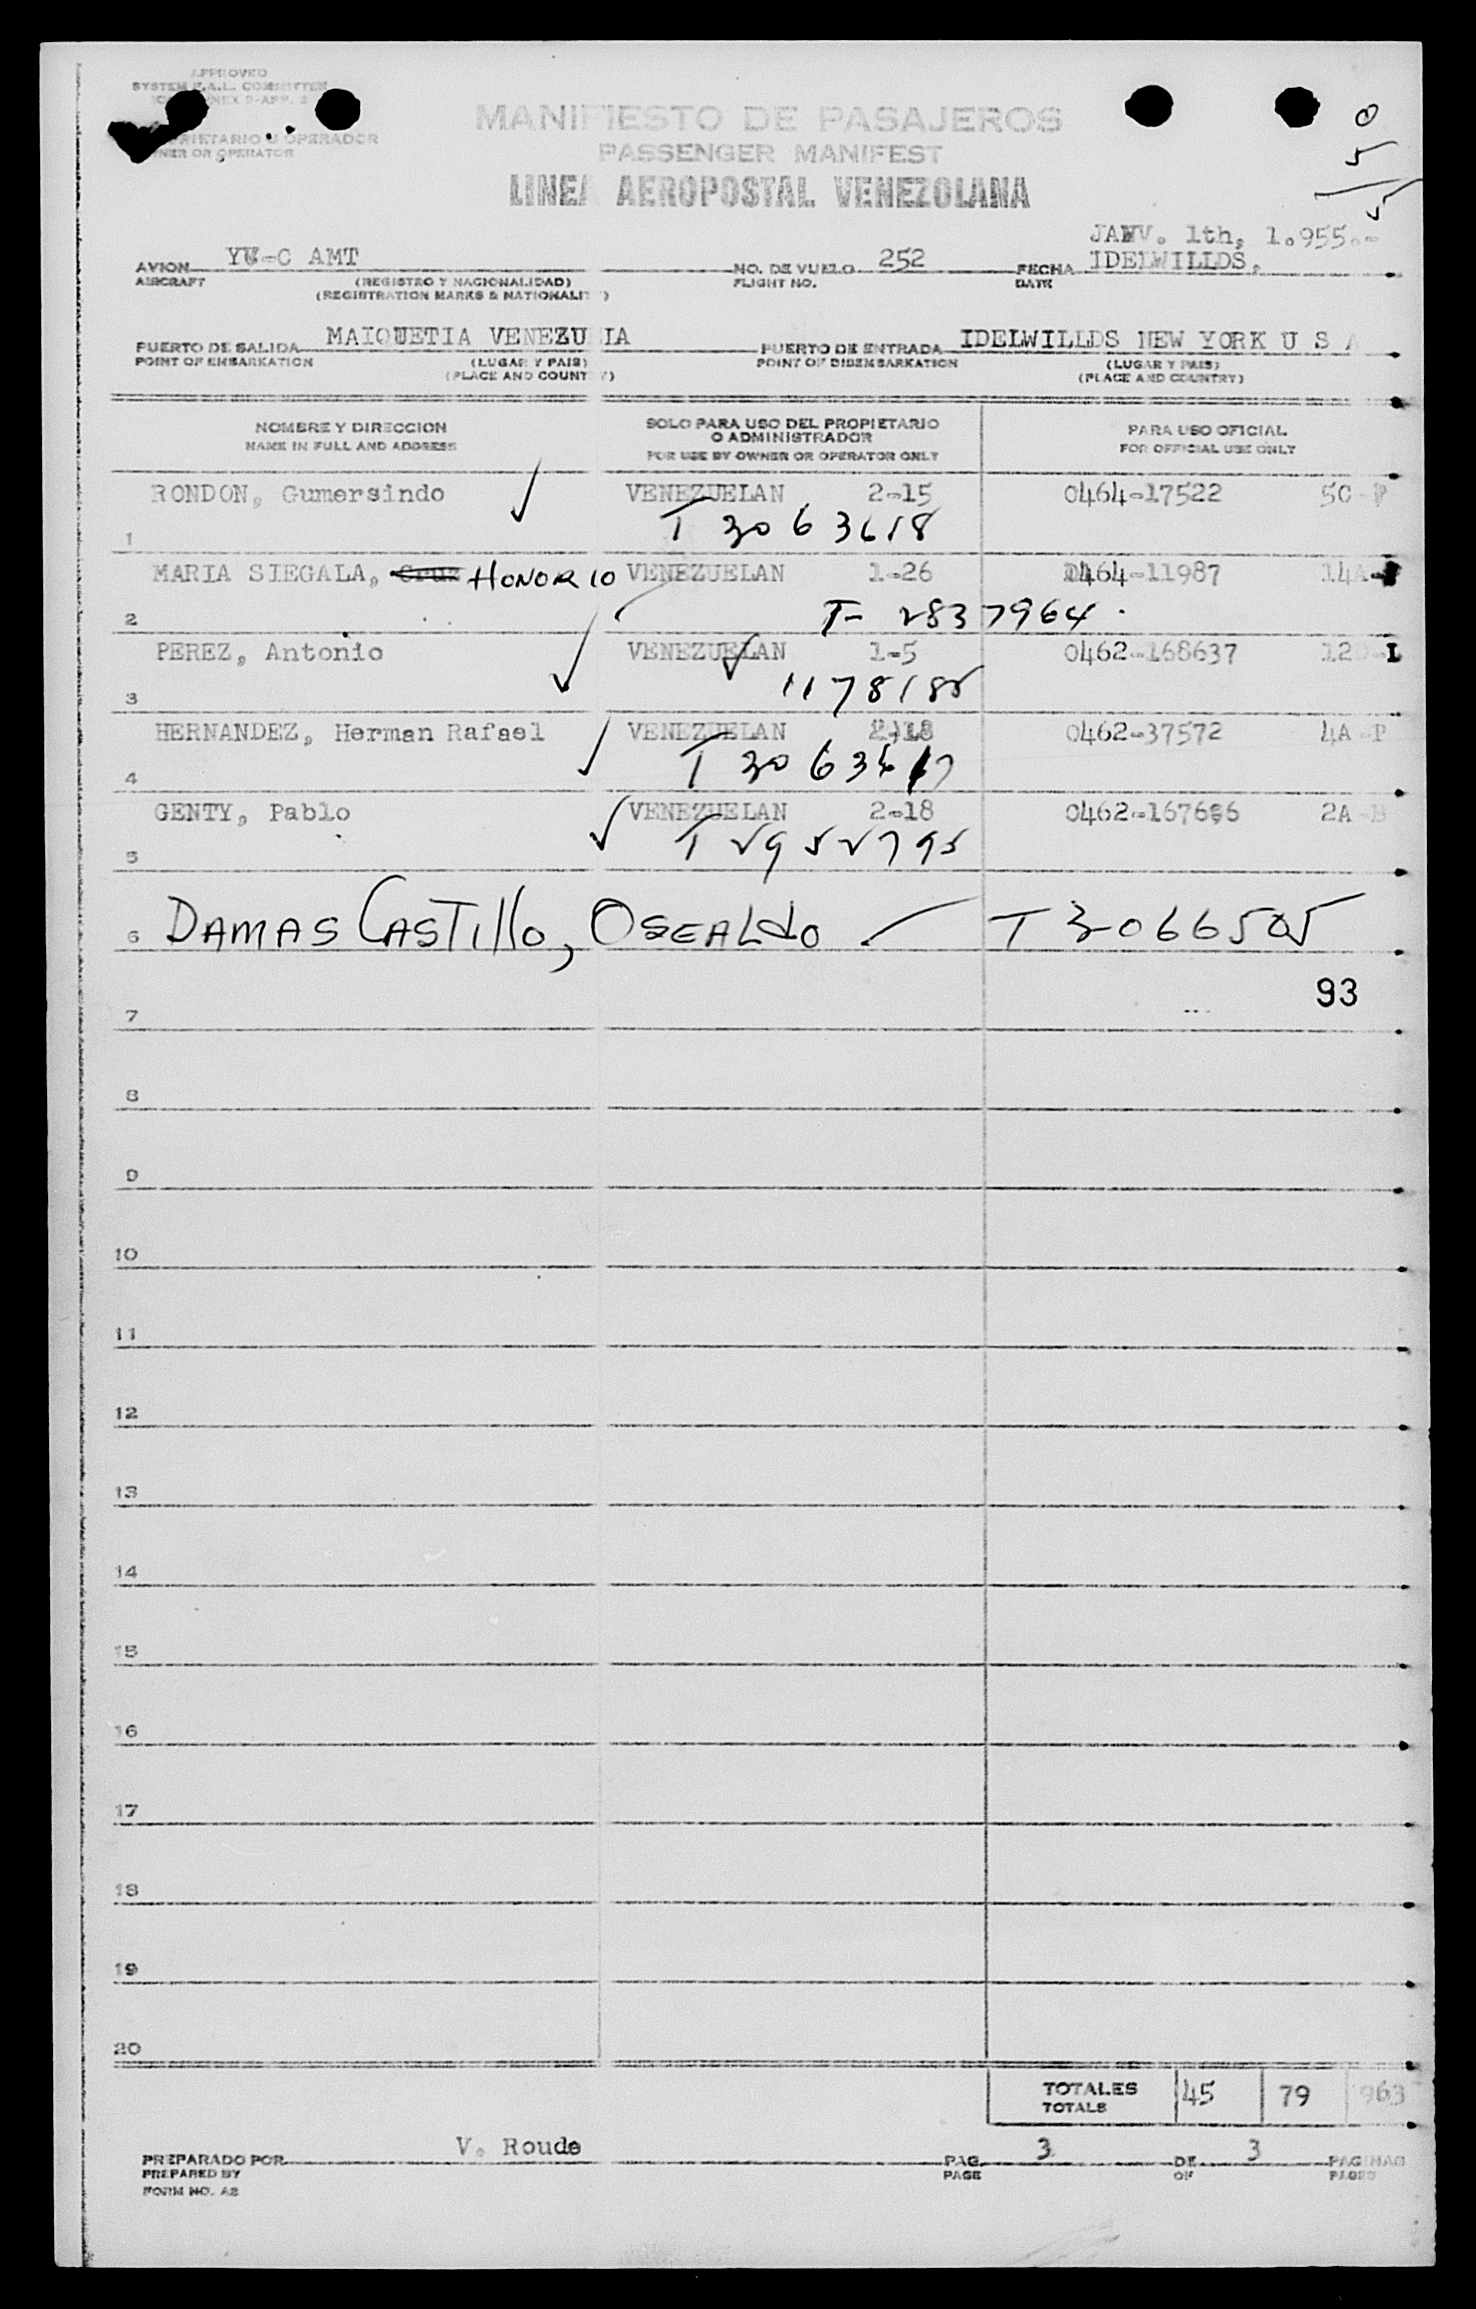 APPROVED
MANIFIESTO DE PASAJEROS
PASSENGER MANIFEST
LINEA AEROPOSTAL VENEZOLANA
U OPERADOR
OR OPERATOR
JANV. 1th, 1.955.-
AVION YV-C AMT NO. DE VUELO 252 FECHA IDELWILLDS,
AIRCRAFT (REGISTRO Y NACIONALIDAD) FLIGHT NO. DATE
(REGISTRATION MARKS & NATIONALITY)
PUERTO DE SALIDA MAIQUETIA VENEZUELA PUERTO DE ENTRADA IDELWILLDS NEW YORK U S A
POINT OF EMBARKATION (LUGAR Y PAIS) POINT OF DISEMBARKATION (LUGAR Y PAIS)
(PLACE AND COUNTRY) (PLACE AND COUNTRY)
NOMBRE Y DIRECCION SOLO PARA USO DEL PROPIETARIO O ADMINISTRADOR PARA USO OFICIAL
NAME IN FULL AND ADDRESS FOR USE BY OWNER OR OPERATOR ONLY FOR OFFICIAL USE ONLY
RONDON, Gumersindo VENEZUELAN 2-15 0464-17522 5C-P
1 T 3063618
MARIA SIEGALA, Cruz HONORIO VENEZUELAN 1-26 0464-11987 14A-
2 T- 2837964
PEREZ, Antonio VENEZUELAN 1-5 0462-168637 12 -L
3 1178185
HERNANDEZ, Herman Rafael VENEZUELAN 2-18 0462-37572 4A-P
4 T 3063617
GENTY, Pablo VENEZUELAN 2-18 0462-167686 2A-B
5 T 2952795
6 DAMAS CASTILLO, OSEALDO T 3066505
93
7
8
9
10
11
12
13
14
15
16
17
18
19
20
TOTALES 45 79 963
TOTALS
PREPARADO POR V. Roude PAG. 3 DE 3 PAGINAS
PREPARED BY PAGE OF PAGES
FORM NO. A2